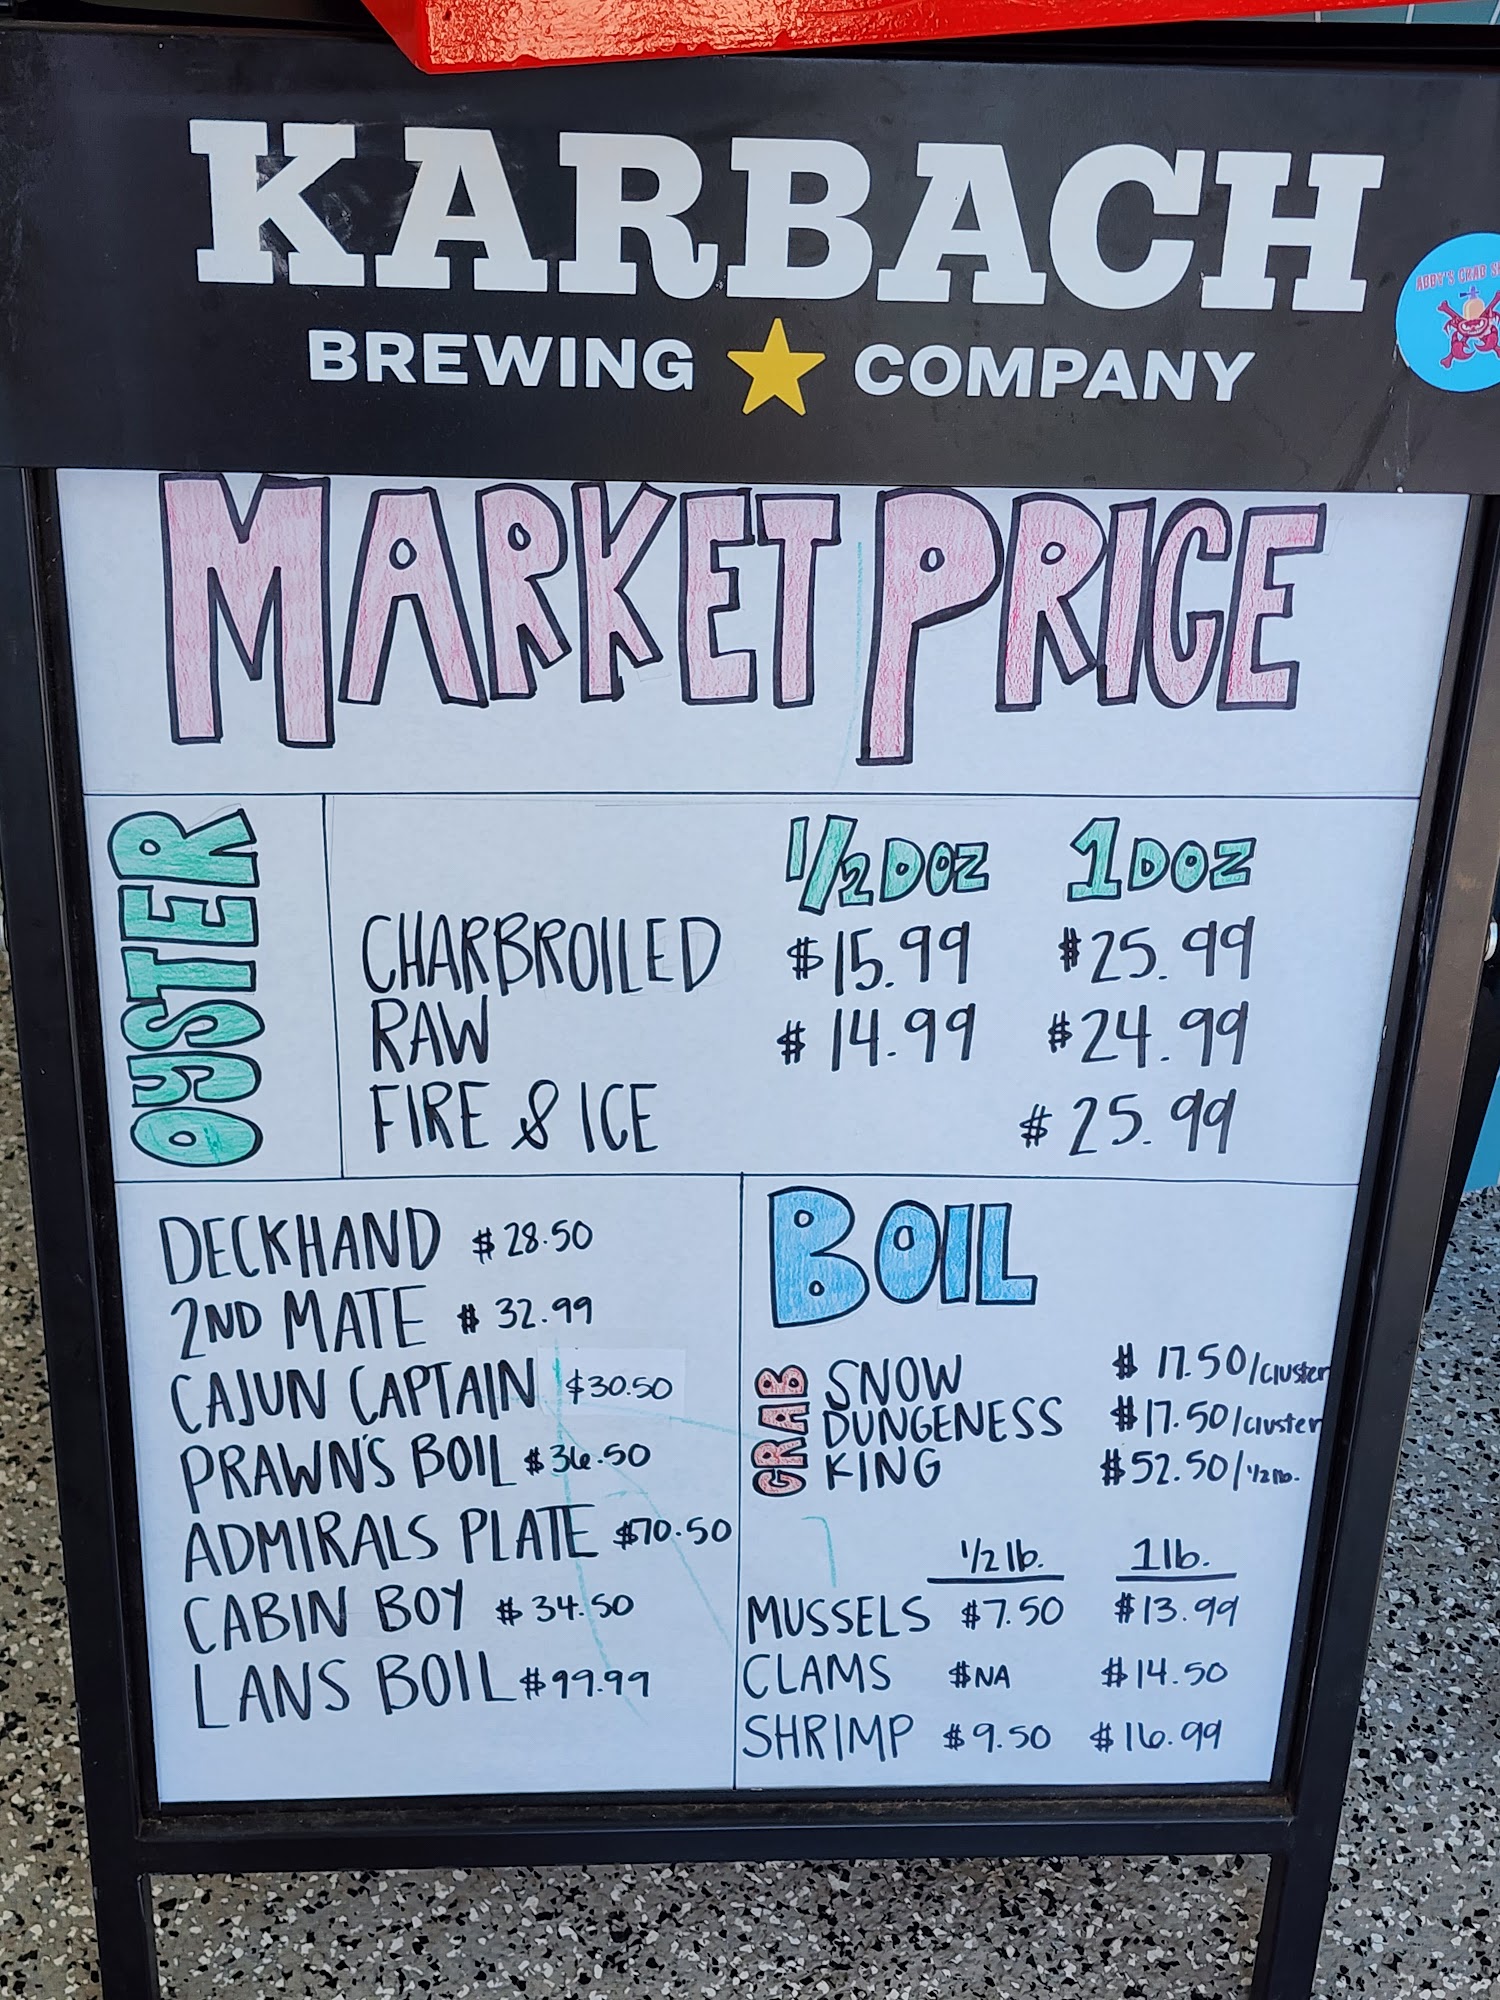 KARBACH
BREWING COMPANY
ABBY'S CRAB
MARKET PRICE
OYSTER
1/2 DOZ 1 DOZ
CHARBROILED $15.99 $25.99
RAW $14.99 $24.99
FIRE & ICE $25.99
DECKHAND $28.50
2ND MATE $32.99
CAJUN CAPTAIN $30.50
PRAWN'S BOIL $36.50
ADMIRALS PLATE $70.50
CABIN BOY $34.50
LANS BOIL $99.99
BOIL
CRAB
SNOW $17.50/cluster
DUNGENESS $17.50/cluster
KING $52.50/1/2 lb.
1/2 lb. 1 lb.
MUSSELS $7.50 $13.99
CLAMS $NA $14.50
SHRIMP $9.50 $16.99